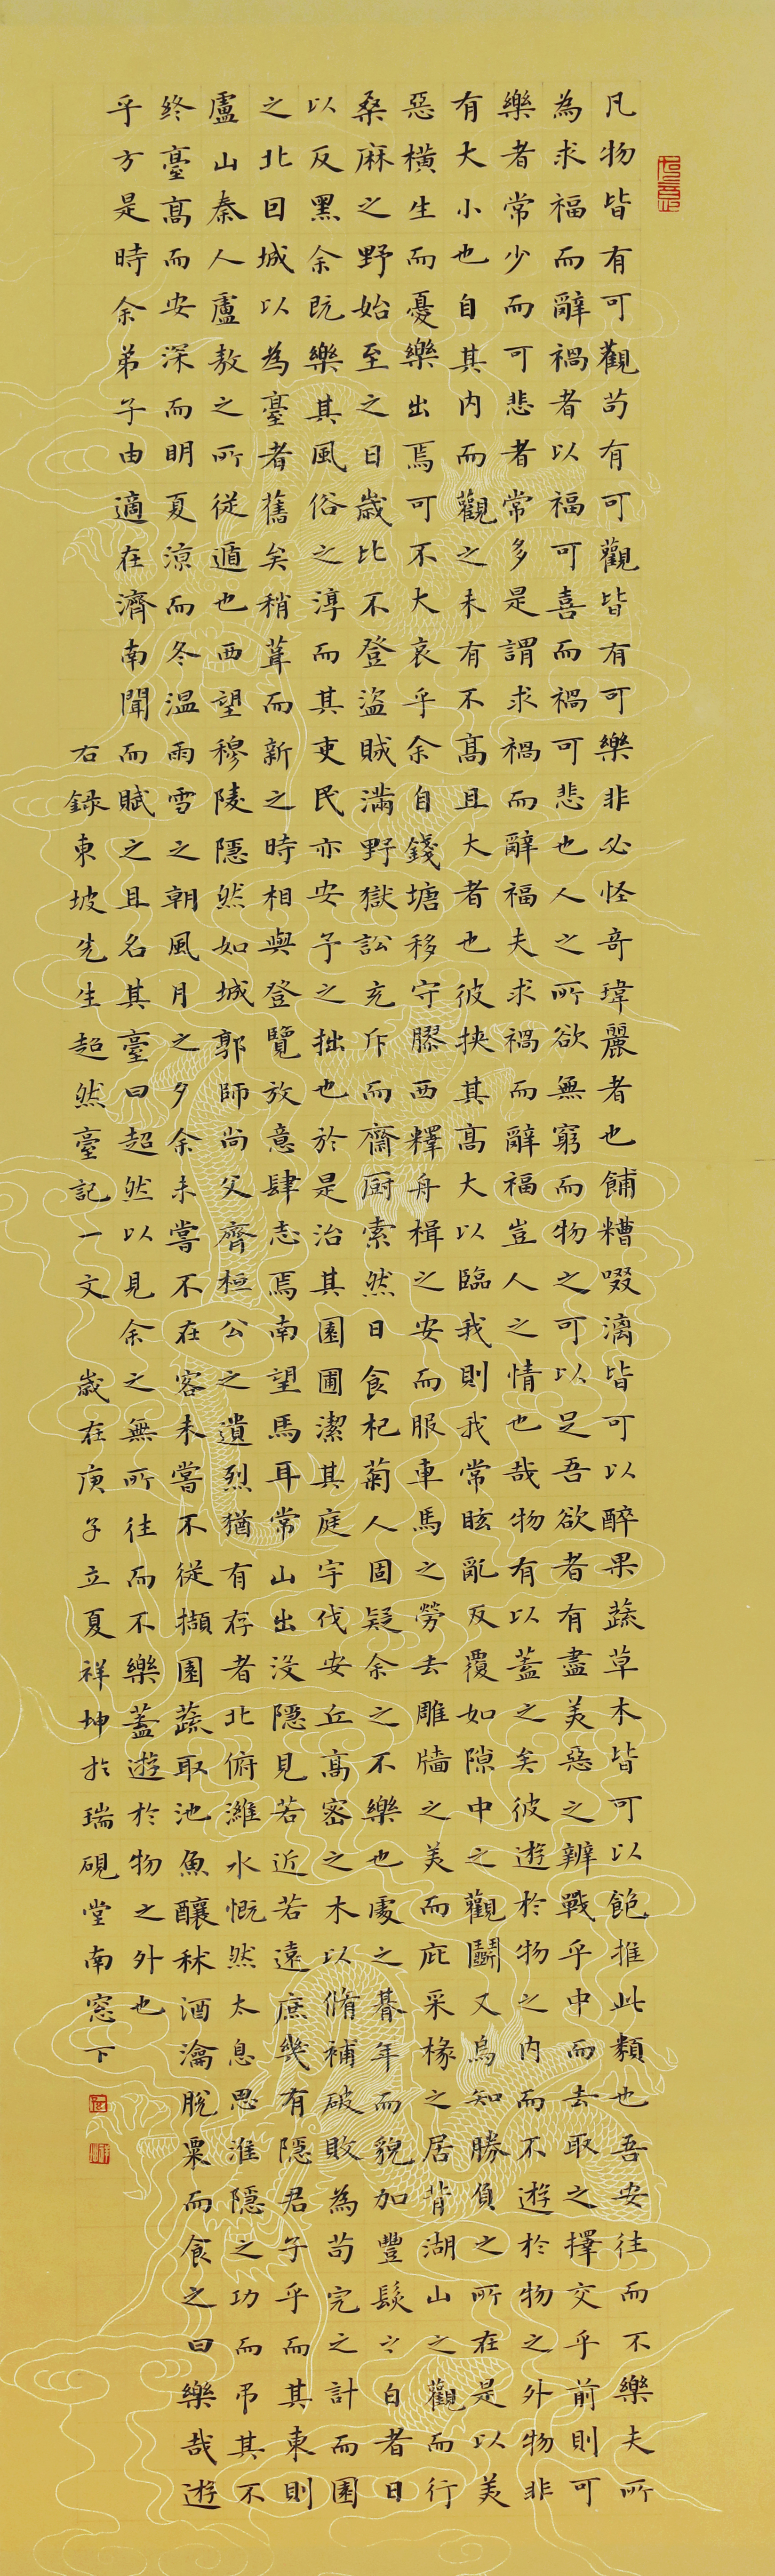 凡物皆有可觀苟有可觀皆有可樂非必怪奇瑋麗者也餔糟啜漓皆可以醉果蔬草木皆可以飽推此類也吾安往而不樂夫所
為求福而辭禍者以福可喜而禍可悲也人之所欲無窮而物之可以足吾欲者有盡美惡之辨戰乎中而去取之擇交乎前則可
樂者常少而可悲者常多是謂求禍而辭福夫求禍而辭福豈人之情也哉物有以蓋之矣彼遊於物之內而不遊於物之外物非
有大小也自其內而觀之未有不高且大者也彼挾其高大以臨我則我常眩亂反覆如隙中之觀鬭又烏知勝負之所在是以美
惡橫生而憂樂出焉可不大哀乎余自錢塘移守膠西釋舟楫之安而服車馬之勞去雕牆之美而庇采椽之居背湖山之觀而行
桑麻之野始至之日歲比不登盜賊滿野獄訟充斥而齋厨索然日食杞菊人固疑余之不樂也處之朞年而貌加豐髮之白者日
以反黑余既樂其風俗之淳而其吏民亦安予之拙也於是治其園圃潔其庭宇伐安丘高密之木以脩補破敗為苟完之計而園
之北因城以為臺者舊矣稍葺而新之時相與登覽放意肆志焉南望馬耳常山出沒隱見若近若遠庶幾有隱君子乎而其東則
盧山秦人盧敖之所從遁也西望穆陵隱然如城郭師尚父齊桓公之遺烈猶有存者北俯濰水慨然太息思淮隱之功而吊其不
終臺高而安深而明夏涼而冬溫雨雪之朝風月之夕余未嘗不在客未嘗不從擷園蔬取池魚釀秫酒瀹脫粟而食之曰樂哉遊
乎方是時余弟子由適在濟南聞而賦之且名其臺曰超然以見余之無所往而不樂蓋遊於物之外也
右錄東坡先生超然臺記一文 歲在庚子立夏祥坤於瑞硯堂南窓下